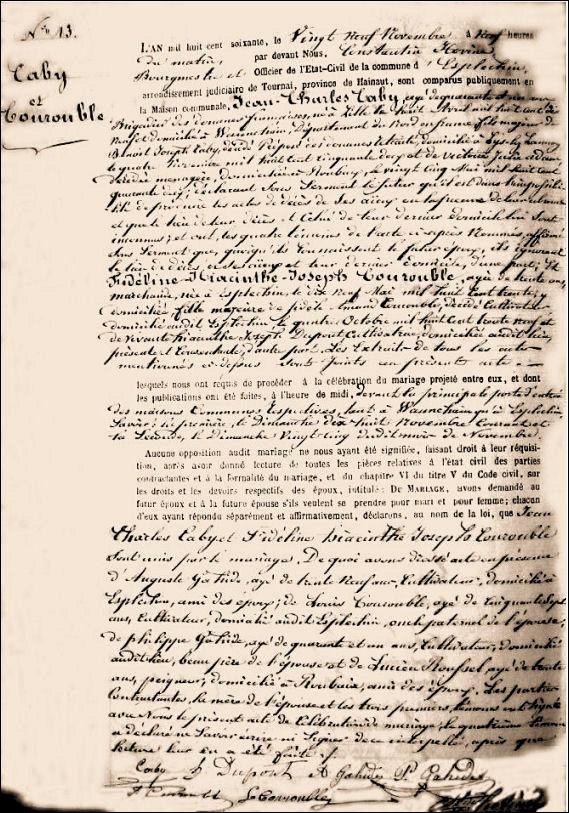 N° 13.
Caby
et
Courouble
L'AN mil huit cent soixante, le Vingt neuf Novembre à neuf heures
du matin, par devant Nous, Constantin
Bourgmestre et Officier de l'Etat-Civil de la commune d'Esplechin,
arrondissement judiciaire de Tournai, province de Hainaut, sont comparus publiquement en
la Maison communale, Jean-Charles Caby, âgé de quarante et un ans
Brigadier des douanes françaises, né à Lille le huit Avril mil huit cent dix
neuf domicilié à Wannehain, département du Nord en france fils majeur de
Benoît Joseph Caby, décédé Préposé des douanes retraité, domicilié à Lys-lez-Lannoy
le quatre mil huit cent cinquante deux et de
décédée ménagère, domiciliée à Roubaix, le vingt cinq Mai mil huit cent
quarante déclarant sous Serment le futur qu'il est dans l'impossibi-
lité de produire les actes de décès de ses aïeux
et que le lieu de leur décès et Celui de leur dernier domicile lui sont
inconnus; et ont, les quatre témoins de l'acte ci-après Nommés, affirmé
sous Serment que, quoiqu'ils Connaissent le futur époux, ils ignorent
le lieu de décès et leur dernier domicile, d'une part; Et
Fidéline-Hiacinthe-Joseph Courouble, âgée de trente ans,
marchande, née à Esplechin, le dix neuf Mai mil huit Cent trente, y
domiciliée fille majeure de fidèle Courouble, décédé Cultivateur
domicilié audit Esplechin le quatre Octobre mil huit cent trente neuf et
de vivante hiacinthe Joseph Dupont Cultivatrice, domiciliée audit lieu,
présente et Consentante, d'autre part. Les Extraits de tous les actes
mentionnés ci-dessus sont joints au présent acte:
lesquels nous ont requis de procéder à la célébration du mariage projeté entre eux, et dont
les publications ont été faites, à l'heure de midi, devant la principale porte d'entrée
des maisons Communes respectives, tant à Wannehain qu'à Esplechin
Savoir: la première, le Dimanche dix huit Novembre Courant et
la Seconde, le Dimanche Vingt cinq dudit mois de Novembre.
Aucune opposition audit mariage ne nous ayant été signifiée, faisant droit à leur réquisi-
tion, après avoir donné lecture de toutes les pièces relatives à l'état civil des parties
contractantes et à la formalité du mariage, et du chapitre VI du titre V du Code civil, sur
les droits et les devoirs respectifs des époux, intitulé: DU MARIAGE, avons demandé au
futur époux et à la future épouse s'ils veulent se prendre pour mari et pour femme; chacun
d'eux ayant répondu séparément et affirmativement, déclarons, au nom de la loi, que Jean
Charles Caby et Fidéline hiacinthe Joseph Courouble
sont unis par le mariage. De quoi avons dressé acte en présence
d'Auguste Gahide, âgé de trente neuf ans, Cultivateur, domicilié à
Esplechin, ami des époux; de Louis Courouble, âgé de Cinquante Sept
ans, Cultivateur, domicilié audit Esplechin, oncle paternel de l'épouse;
de philippe Gahide, âgé de quarante et un ans, Cultivateur, domicilié
audit lieu, beau père de l'épouse et de Lucien Roussel, âgé de trente
ans, peigneur, domicilié à Roubaix, ami des époux. Les parties
Contractantes, la mère de l'épouse et les trois premiers témoins ont signé
avec Nous le présent acte de Célébration de mariage; le quatrième témoin
a déclaré ne Savoir écrire ni Signer de ce interpellé, après que
lecture leur en a été faite
Caby h Dupont A Gahide P. Gahide
F Courouble L Courouble